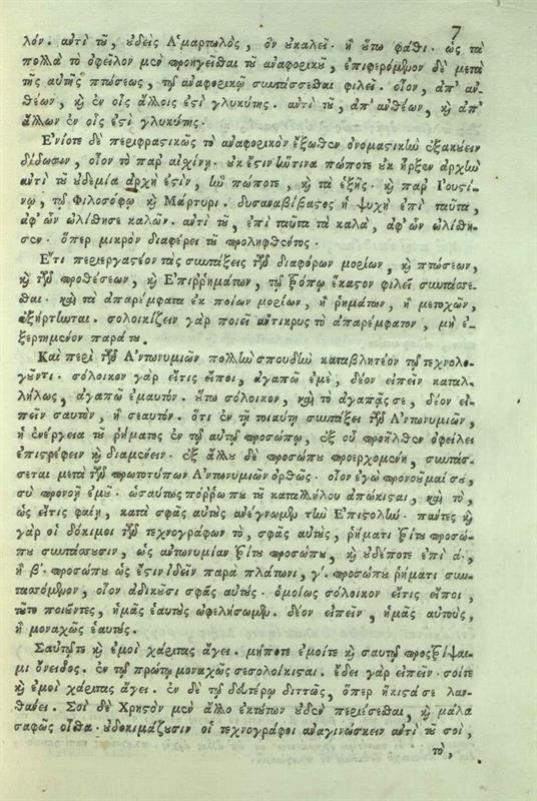 7
λόν. αὐτὶ τοῦ, οὐδεὶς Ἁμαρτωλὸς, ὃν οὐκαλεῖ. ἢ οὕτω φάθι. ὡς τὰ
πολλὰ τὸ ὀφεῖλον μὲν προηγεῖσθαι τοῦ ἀναφορικοῦ, ἐπιφερόμενον δὲ μετὰ
τῆς αὐτῆς πτώσεως, τῷ ἀναφορικῷ συντάσσεσθαι φιλεῖ. οἷον, ἀπ' ἀν-
θέων, καὶ ἐν οἷς ἄλλοις ἐστὶ γλυκύτης. αὐτὶ τοῦ, ἀπ' ἀνθέων, καὶ ἀπ'
ἄλλων ἐν οἷς ἐστὶ γλυκύτης.
Ἐνίοτε δὲ περιφραστικῶς τὸ ἀναφορικὸν ἔξωθεν ὀνομαστικὴν ἐξακούειν
δίδωσιν, οἷον τὸ παρ' αἰχίνῃ. οὐκ ἔστιν ἥντινα πώποτε οὐκ ἦρξεν ἀρχὴν
αὐτὶ τοῦ οὐδεμία ἀρχὴ ἐστὶν, ἣν πώποτε, καὶ τὰ ἑξῆς. καὶ παρ' Ἰουστί-
νῳ, τῷ Φιλοσόφῳ καὶ Μάρτυρι. δυσαναβίβαστος ἡ ψυχὴ ἐπὶ ταῦτα,
ἀφ' ὧν ὠλίσθησε καλῶν. αὐτὶ τοῦ, ἐπὶ ταῦτα τὰ καλὰ, ἀφ' ὧν ὠλίσθη-
σεν. ὅπερ μικρὸν διαφέρει τοῦ προληφθέντος.
Ἔτι περιεργαστέον τὰς συντάξεις τῶν διαφόρων μορίων, καὶ πτώσεων,
καὶ τῶν προθέσεων, καὶ Ἐπιῤῥημάτων, τῷ τρόπῳ ἕκαστον φιλεῖ συντάσσε-
σθαι. καὶ τὰ ἀπαρέμφατα ἐκ ποίων μορίων, ἢ ῥημάτων, ἢ μετοχῶν,
ἐξήρτηνται. σολοικίζειν γὰρ ποιεῖ αὔτικρυς τὸ ἀπαρέμφατον, μὴ ἐ-
ξερτημένον παρά του.
Καὶ περὶ τῶν Ἀντωνυμιῶν πολλὴν σπουδὴν καταβλητέον τῷ τεχνολο-
γοῦντι. σόλοικον γὰρ εἴτις εἴποι, ἀγαπῶ ἐμὲ, δέον εἰπεῖν καταλ-
λήλως, ἀγαπῶ ἐμαυτόν. οὕτω σόλοικον, καὶ τὸ ἀγαπᾷς σε, δέον εἰ-
πεῖν σαυτὸν, ἢ σεαυτόν. ὅτι ἐν τῇ τοιαύτῃ συντάξει τῶν Ἀντωνυμιῶν,
ἡ ἐνέργεια τοῦ ῥήματος ἐν τῷ αὐτῷ προσώπῳ, ἐξ οὗ προῆλθεν ὀφείλει
ἐπιστρέφειν καὶ διαμένειν. ἐξ ἄλλου δὲ προσώπου προερχομένη, συντάσ-
σεται μετὰ τῶν πρωτοτύπων Ἀντωνυμιῶν ὀρθῶς. οἷον ἐγὼ προνοοῦμαί σου,
σὺ προνοῇ ἐμοῦ. ὡσαύτως πόῤῥω που τοῦ καταλλήλου ἀπῴκισται, καὶ τὸ,
ὡς εἴτις φαίη, κατὰ σφᾶς αὐτοὺς ἀνέγνωμεν τὴν Ἐπιστολήν. πάντες καὶ
γὰρ οἱ δόκιμοι τῶν τεχνογράφων τὸ, σφᾶς αὐτοὺς, ῥήματι τρίτου προσώ-
που συντάσσουσιν, ὡς ἀντωνυμίαν τρίτου προσώπου, καὶ οὐδέποτε ἐπὶ ά,
ἢ β'. προσώπου ὡς ἔστιν ἰδεῖν παρὰ πλάτωνι, γ'. προσώπου ῥήματι συν-
ταττόμενον, οἷον ἀδικοῦσι σφᾶς αὐτούς. ὁμοίως σόλοικον εἴτις εἴποι,
τοῦτο ποιοῦντες, ἡμᾶς ἑαυτοὺς ὠφελήσωμεν. δέον εἰπεῖν, ἡμᾶς αὐτοὺς,
ἢ μοναχῶς ἑαυτούς.
Σαυτῷτε καὶ ἐμοὶ χάριτας ἄγει. μήποτε ἐμοίτε καὶ σαυτῷ προστρίψαι-
μι ὄνειδος. ἐν τῷ πρώτῳ μοναχῶς σεσολοίκισται. ἔδει γὰρ εἰπεῖν. σοίτε
καὶ ἐμοὶ χάριτας ἄγει. ἐν δὲ τῷ δευτέρῳ διττῶς, ὅπερ ἥκιστά σε λαν-
θάνει. Σοὶ δὲ Χρηστὸν μὲν ἄλλο ἐκτύπων οὐδὲν περιέσεσθαι, καὶ μάλα
σαφῶς οἶσθα. εὐδοκιμάζουσιν οἱ τεχνογράφοι ἀναγινώσκειν αὐτὶ τοῦ σοὶ,
τὸ,